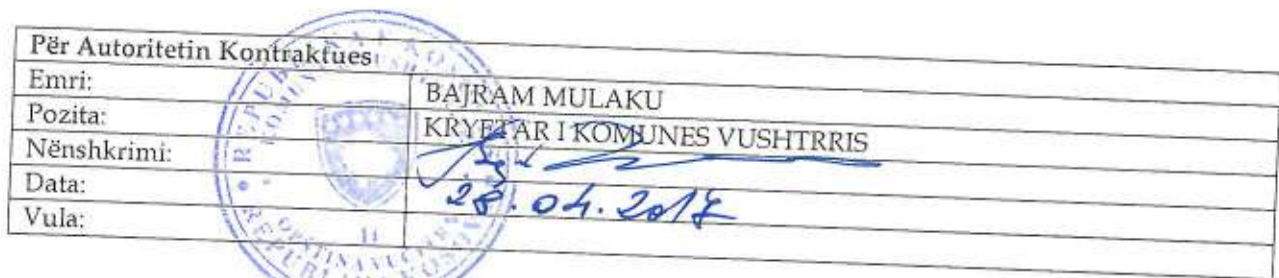 Për Autoritetin Kontraktues
Emri: BAJRAM MULAKU
Pozita: KRYETAR I KOMUNES VUSHTRRIS
Nënshkrimi:
Data: 28.04.2017
Vula: